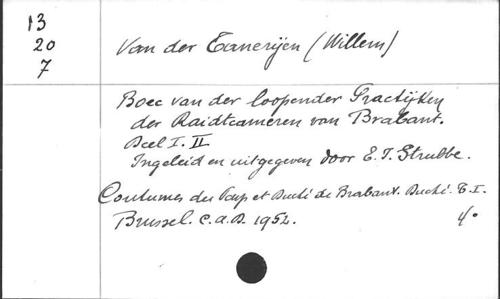 13
20
7
Van der Tanerijen (Willem)
Boec van der loopender Practijken
der Raidtcameren van Brabant.
Deel I. II
Ingeleid en uitgegeven door E. I. Strubbe.
Coutumes du Pays et Duché de Brabant. Duché. T. I.
Brussel. C.a.D. 1952. 4°